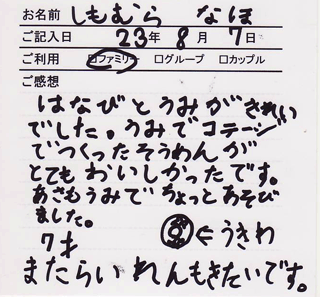 お名前 しもむら なほ
ご記入日 23年 8月 7日
ご利用 □ファミリー □グループ □カップル
ご感想
はなびとうみがきれい
でした。うみでコテージ
でつくったそうめんが
とてもおいしかったです。
あさもうみでちょっとあそび
ました。
7才 ←うきわ
またらいねんもきたいです。